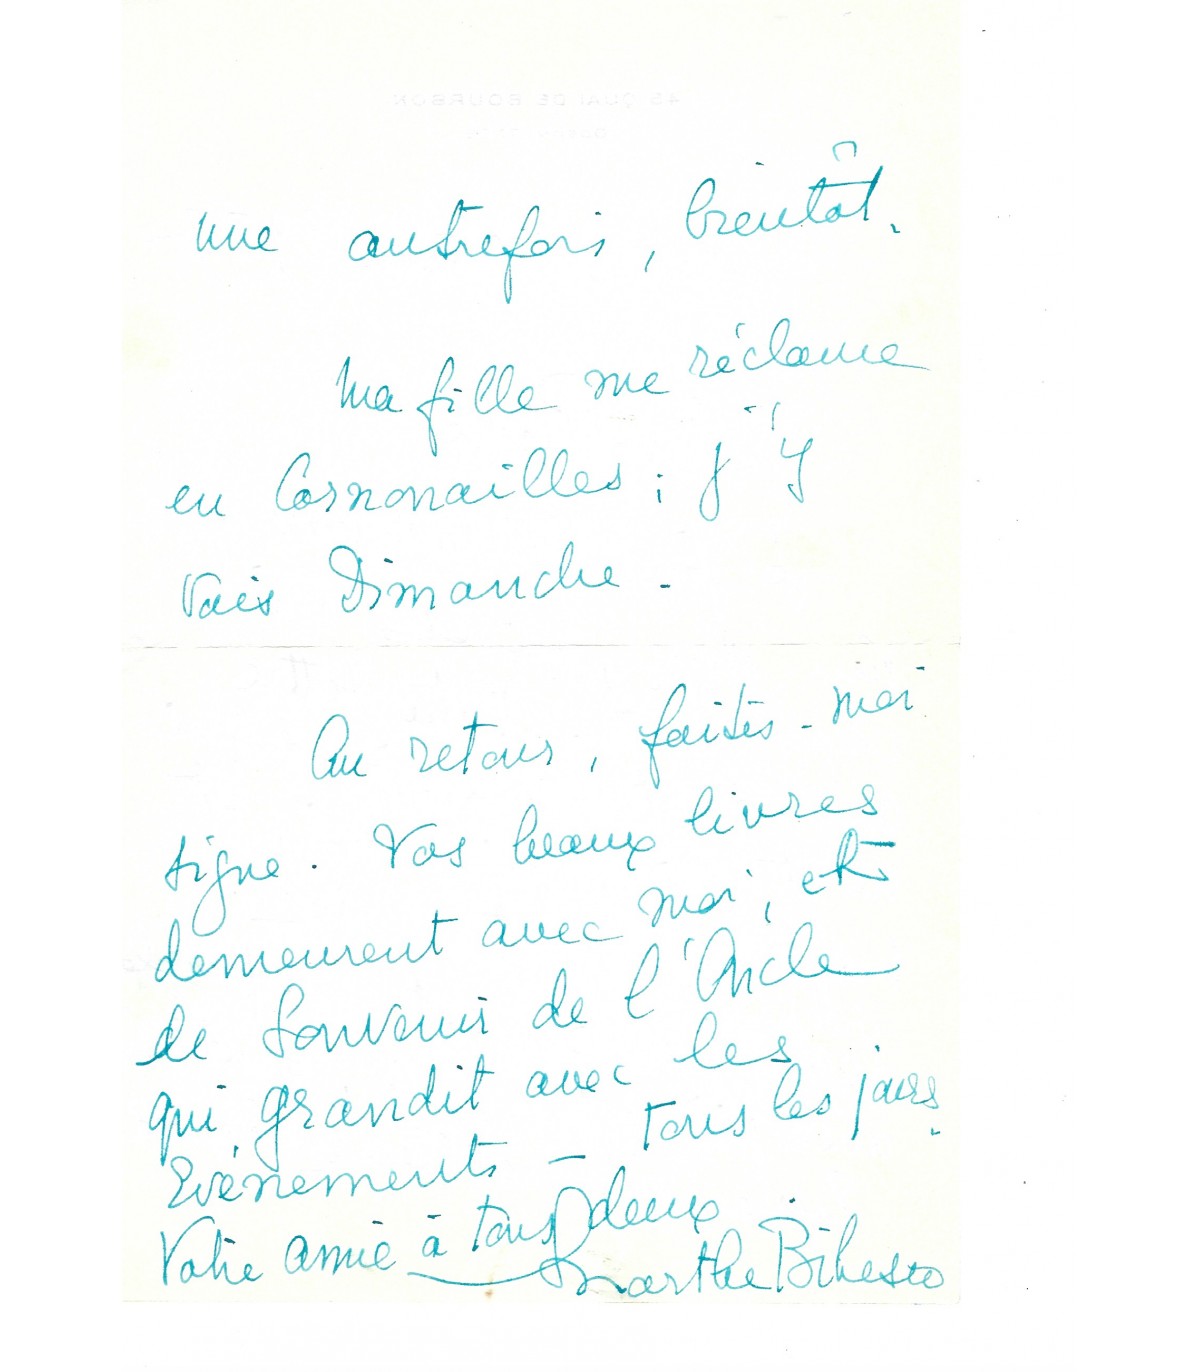 une autrefois, bientôt.
Ma fille me réclame
en Cornonailles ; j'y
vais Dimanche.
Au retour, faites-moi
signe. Vos beaux livres
demeurent avec moi, et
le Souvenir de l'Oncle
qui grandit avec les
Evénements — tous les jours.
Votre amie à tous deux
Marthe Bibesco